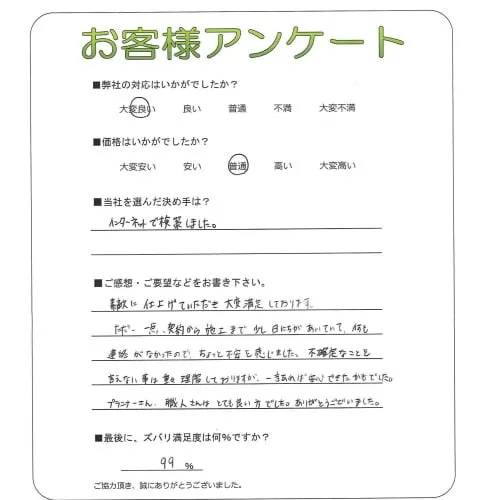 お客様アンケート
■弊社の対応はいかがでしたか？
大変良い 良い 普通 不満 大変不満
■価格はいかがでしたか？
大変安い 安い 普通 高い 大変高い
■当社を選んだ決め手は？
インターネットで検索しました。
■ご感想・ご要望などをお書き下さい。
素敵に仕上げていただき大変満足しております。
ただ一点、契約から施工まで少し日にちがあいていて、何も
連絡がなかったので、ちょっと不安を感じました。不確定なことを
言えない事は重々理解しておりますが、一言あれば安心できたかもでした。
プランナーさん、職人さんはとても良い方でした。ありがとうございました。
■最後に、ズバリ満足度は何％ですか？
99 ％
ご協力頂き、誠にありがとうございました。